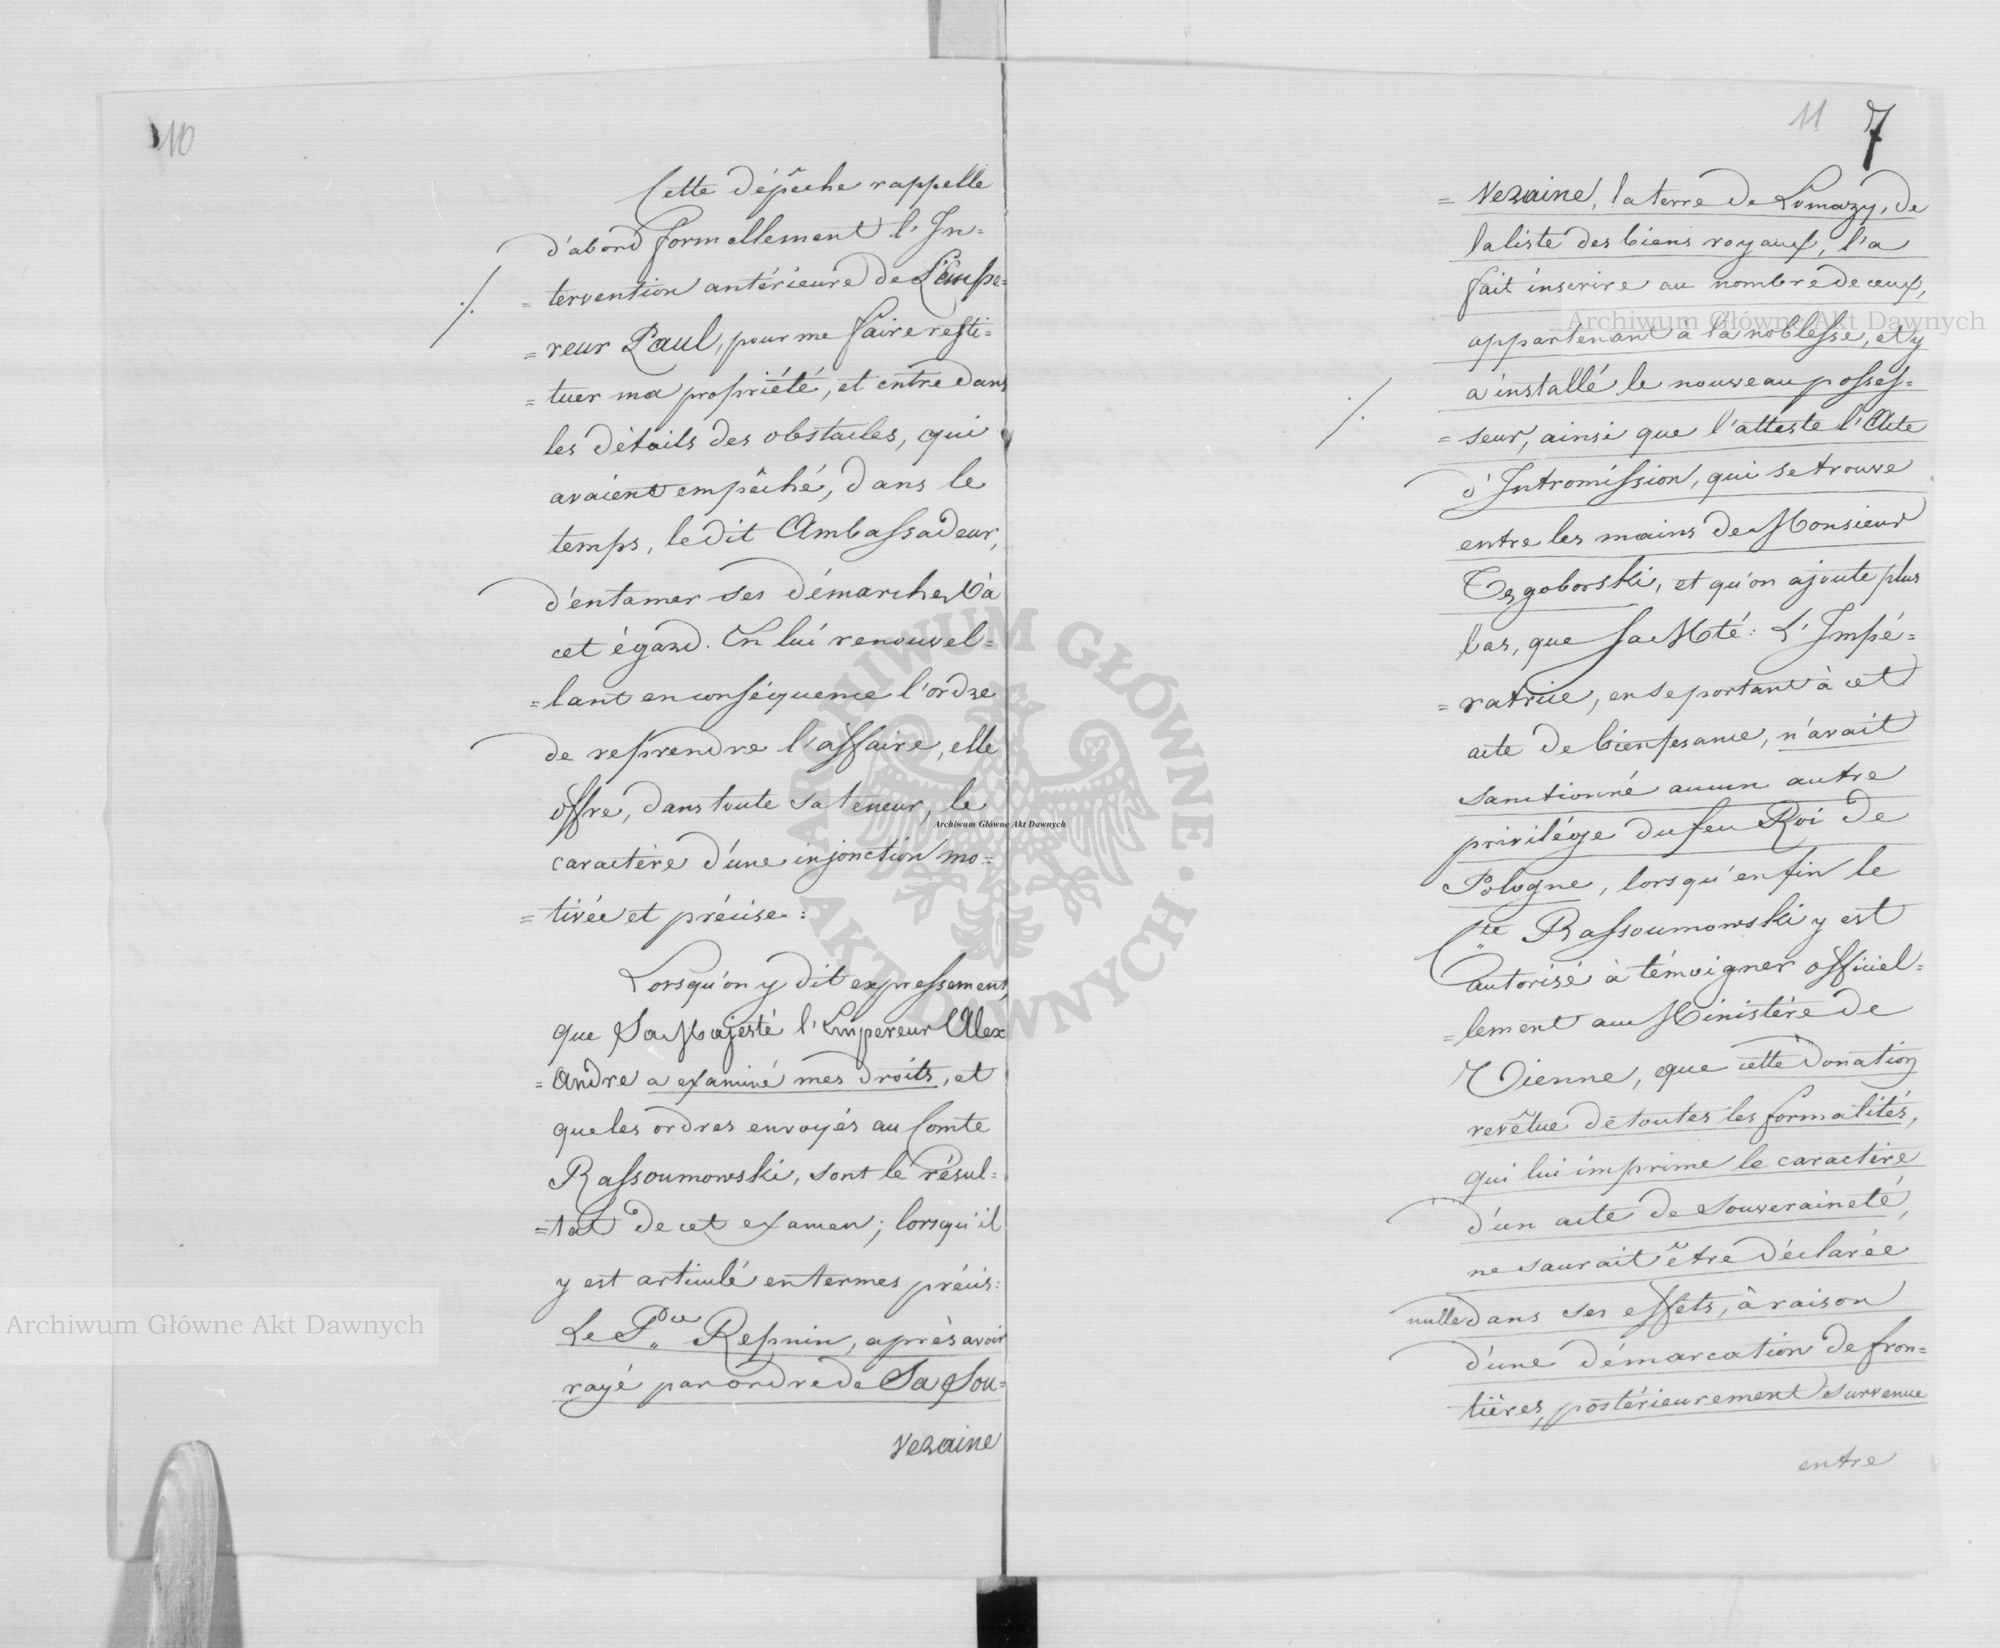 10
Cette dépêche rappelle
d'abord formellement l'In=
./. = tervention antérieure de L'Empe=
= reur Paul, pour me faire resti=
= tuer ma propriété, et entre dans
les détails des obstacles, qui
avaient empêché, dans le
temps, le dit Ambassadeur,
d'entamer ses démarches à
cet égard. En lui renouvel=
= lant en conséquence l'ordre
de reprendre l'affaire, elle
offre, dans toute sa teneur, le
caractère d'une injonction mo=
= tivée et précise:
Lorsqu'on y dit expressement,
que Sa Majesté l'Empereur Alex
= andre a examiné mes droits, et
que les ordres envoyés au Comte
Rassoumowski, sont le résul=
= tat de cet examen; lorsqu'il
y est articulé en termes précis:
Le P.ce Repnin, après avoir
rayé par ordre de Sa Sou=
veraine
11 7
= veraine, la terre de Lomazy, de
la liste des biens royaux, l'a
fait inscrire au nombre de ceux,
appartenant à la noblesse, et y
a installé le nouveau posses=
./. = seur, ainsi que l'atteste l'Acte
d'Intromission, qui se trouve
entre les mains de Monsieur
Tegoborski, et qu'on ajoute plus
bas, que Sa Mté: L'Impé=
= ratrice, en se portant à cet
acte de bienfesance, n'avait
sanctionné aucun autre
privilége du feu Roi de
Pologne, lorsqu'enfin le
Cte Rassoumowski y est
autorisé à témoigner officiel=
= lement au Ministère de
Vienne, que cette donation
revêtue de toutes les formalités,
qui lui imprime le caractère
d'un acte de souveraineté,
ne saurait être déclarée
nulle dans ses effets, à raison
d'une démarcation de fron=
tières, postérieurement survenue
entre
Archiwum Główne Akt Dawnych
Archiwum Główne Akt Dawnych
Archiwum Główne Akt Dawnych
ARCHIWUM GŁÓWNE · AKT DAWNYCH ·